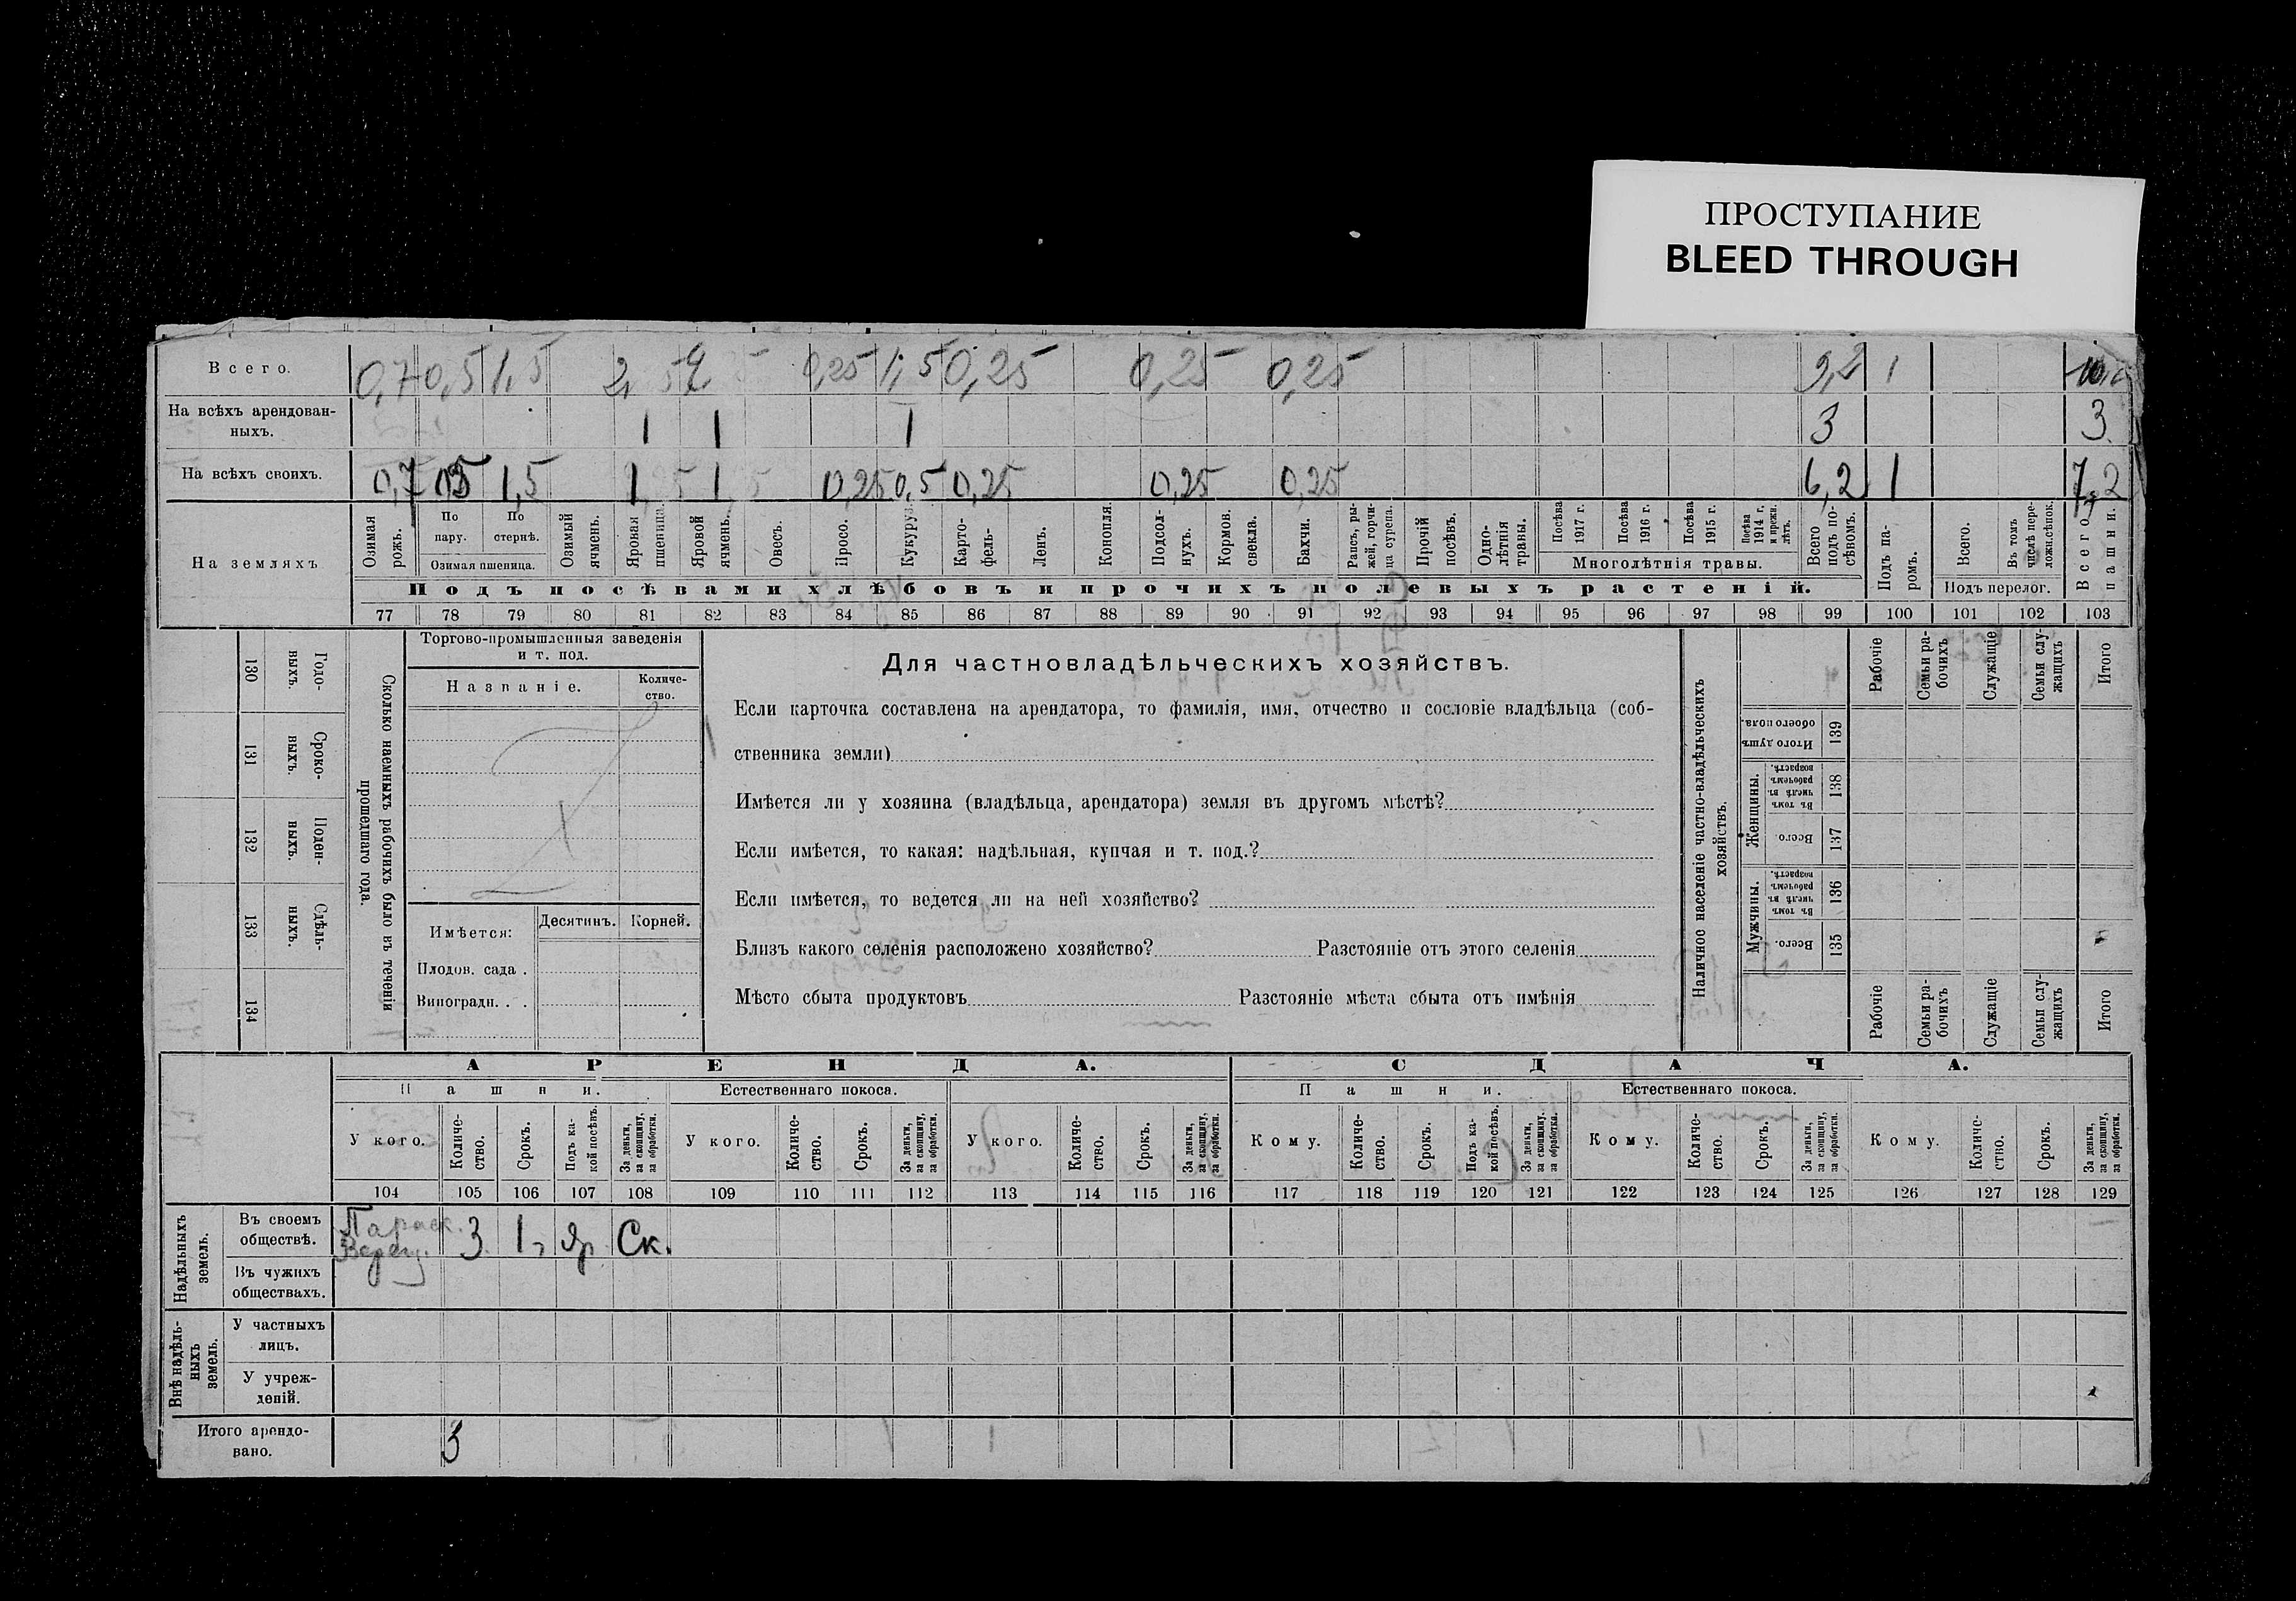 ПРОСТУПАНИЕ
BLEED THROUGH
Всего. 0,7 0,5 1,5 2, 0,25 1,5 0,25 0,25 0,25 9,2 1
На всѣхъ арендован-
ныхъ. 1 1 1 3 3
На всѣхъ своихъ. 0,7 1,5 1 1 0,25 0,5 0,25 0,25 0,25 6,2 1 7,2
На земляхъ
Озимая рожь.
По пару.
По стернѣ.
Озимая пшеница.
Озимый ячмень.
Яровая пшеница.
Яровой ячмень.
Овесъ.
Просо.
Кукуруз.
Карто-
фель.
Ленъ.
Конопля.
Подсол-
нухъ.
Кормов. свекла.
Бахчи.
Рапсъ, ры-
жей, горчи-
ца сурепа.
Прочій посѣвъ.
Одно-
лѣтнія травы.
Посѣва 1917 г.
Посѣва 1916 г.
Посѣва 1915 г.
Посѣва 1914 г. и прежн. лѣтъ.
Многолѣтнія травы.
Всего подъ по-
сѣвомъ.
Подъ па-
ромъ.
Всего.
Въ томъ числѣ пере-
ложн.сѣнок.
Подъ перелог.
Всего пашни.
Подъ посѣвами хлѣбовъ и прочихъ полевыхъ растеній.
77 78 79 80 81 82 83 84 85 86 87 88 89 90 91 92 93 94 95 96 97 98 99 100 101 102 103
130 Годо-
выхъ.
131 Сроко-
выхъ.
132 Поден-
ныхъ.
133 Сдѣль-
ныхъ.
134
Сколько наемныхъ рабочихъ было въ теченіи
прошедшаго года.
Торгово-промышленныя заведенія
и т. под.
Названіе. Количе-
ство.
Имѣется: Десятинъ. Корней.
Плодов. сада .
Виноградн. . .
Для частновладѣльческихъ хозяйствъ.
Если карточка составлена на арендатора, то фамилія, имя, отчество и сословіе владѣльца (соб-
ственника земли)
Имѣется ли у хозяина (владѣльца, арендатора) земля въ другомъ мѣстѣ?
Если имѣется, то какая: надѣльная, купчая и т. под.?
Если имѣется, то ведется ли на ней хозяйство?
Близъ какого селенія расположено хозяйство? Разстояніе отъ этого селенія
Мѣсто сбыта продуктовъ Разстояніе мѣста сбыта отъ имѣнія
Наличное населеніе частно-владѣльческихъ
хозяйствъ.
Рабочіе
Семьи ра-
бочихъ
Служащіе
Семьи слу-
жащихъ
Итого
Итого душъ обоего пола. 139
Женщины.
Въ томъ числѣ въ рабочемъ возрастѣ. 138
Всего. 137
Мужчины.
Въ томъ числѣ въ рабочемъ возрастѣ. 136
Всего. 135
Рабочіе
Семьи ра-
бочихъ
Служащіе
Семьи слу-
жащихъ
Итого
АРЕНДА. СДАЧА.
Пашни. Естественнаго покоса. Пашни. Естественнаго покоса.
У кого. Количе-
ство. Срокъ. Подъ ка-
кой посѣвъ. За деньги, за скопщину, за обработки.
У кого. Количе-
ство. Срокъ. За деньги, за скопщину, за обработки.
У кого. Количе-
ство. Срокъ. За деньги, за скопщину, за обработки.
Кому. Количе-
ство. Срокъ. Подъ ка-
кой посѣвъ. За деньги, за скопщину, за обработки.
Кому. Количе-
ство. Срокъ. За деньги, за скопщину, за обработки.
Кому. Количе-
ство. Срокъ. За деньги, за скопщину, за обработки.
104 105 106 107 108 109 110 111 112 113 114 115 116 117 118 119 120 121 122 123 124 125 126 127 128 129
Надѣльныхъ земель.
Въ своемъ
обществѣ. 3 1 Яр Ск.
Въ чужихъ
обществахъ.
Внѣ надѣль-
ныхъ
земель.
У частныхъ
лицъ.
У учреж-
деній.
Итого арендо-
вано. 3